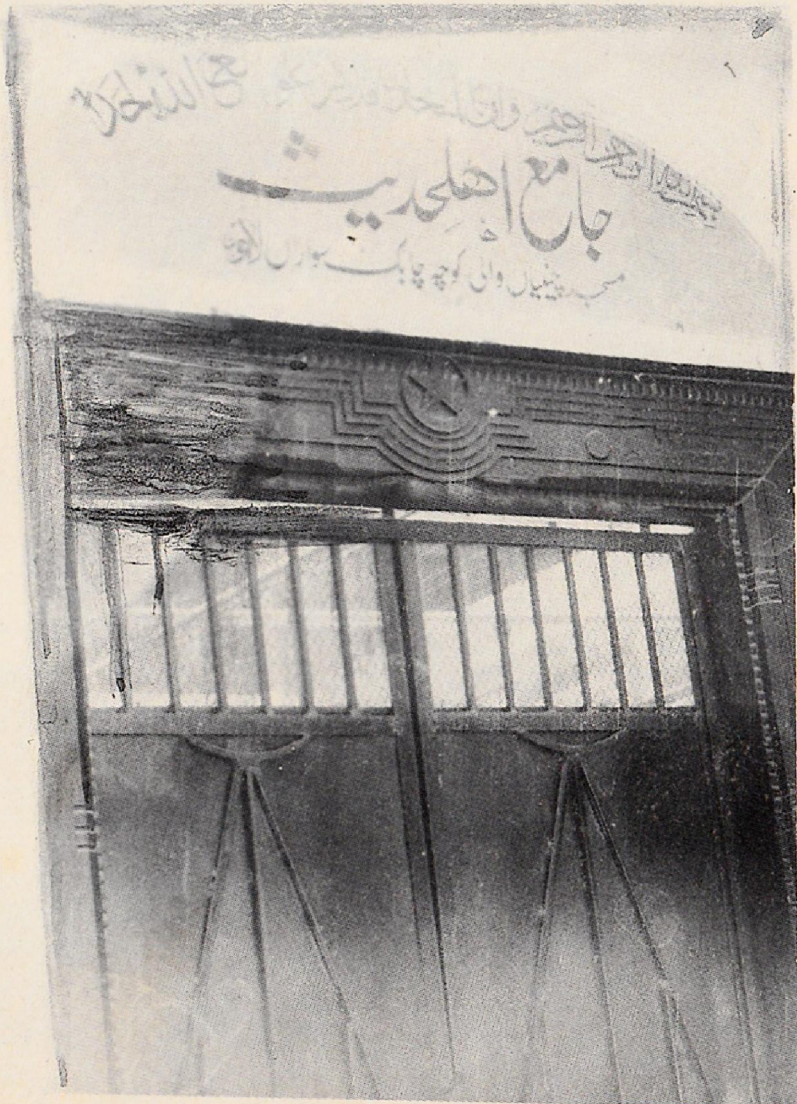 بسم الله الرحمن الرحيم وان المساجد لله فلا تدعوا مع الله احدا
جامع اهلحدیث
مسجد چینیاں والی کوچہ چابک سوراں لاہور